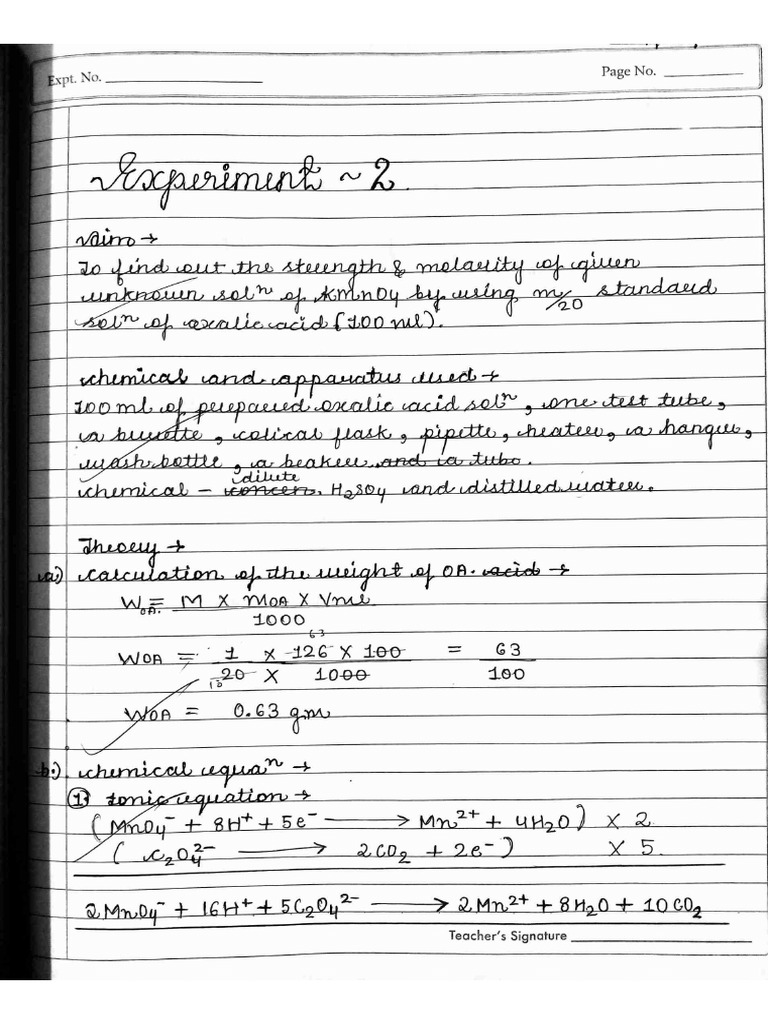 Expt. No.
Page No.
Experiment ~ 2
Aim →
To find out the strength & molarity of given
unknown solⁿ of KMnO4 by using m/20 standard
solⁿ of oxalic acid (100 ml).
Chemical and apparatus used →
100 ml of prepared oxalic acid solⁿ, one test tube,
a burette, colical flask, pipette, heater, a hanger,
wash bottle, a beaker and a tube.
dilute
Chemical – concen. H2SO4 and distilled water.
Theory →
a) Calculation of the weight of OA. acid →
WOA. = M × MOA × Vml
1000
63
WOA = 1 × 126 × 100 = 63
20 × 1000 100
10
WOA = 0.63 gm
b.) Chemical equaⁿ →
1. Ionic equation →
(MnO4⁻ + 8H⁺ + 5e⁻ ⟶ Mn²⁺ + 4H2O) × 2
( C2O4²⁻ ⟶ 2CO2 + 2e⁻) × 5.
2MnO4⁻ + 16H⁺ + 5C2O4²⁻ ⟶ 2Mn²⁺ + 8H2O + 10CO2
Teacher's Signature